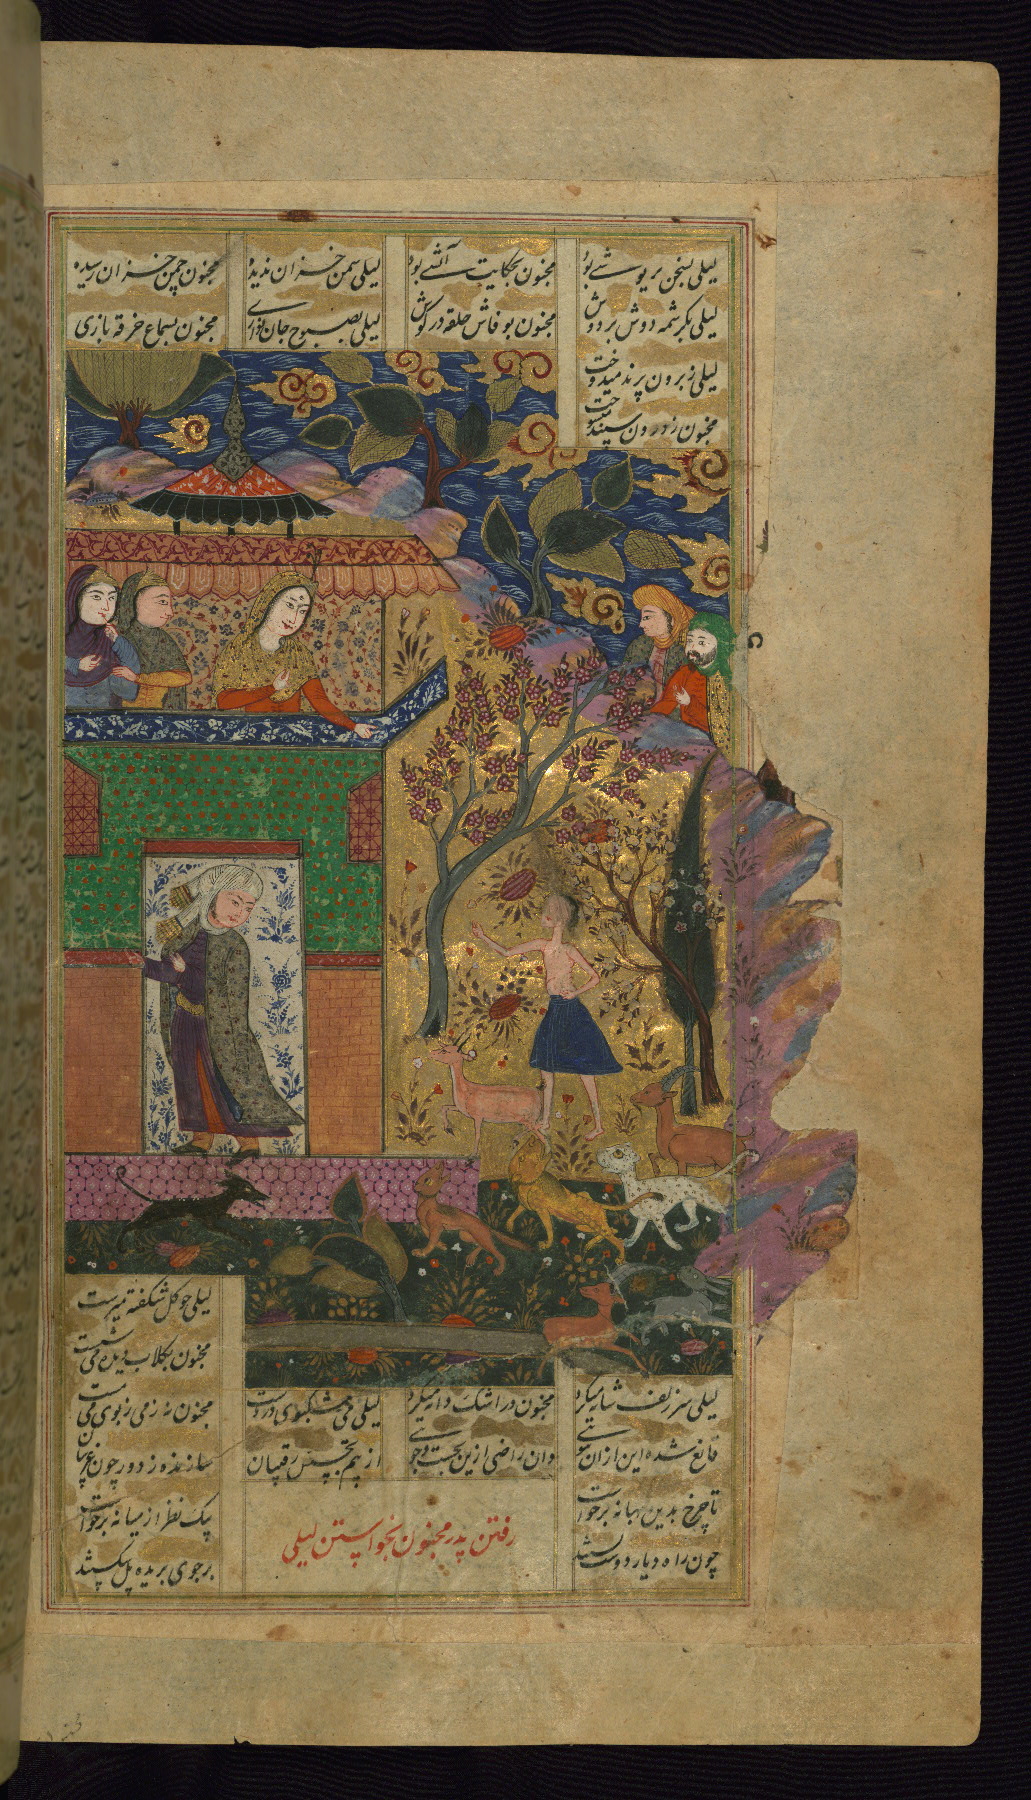 لیلی بسخن پریوشی بود مجنون بحکایت آتشی بود لیلی سمن خزان ندیده مجنون چمن خزان رسیده
لیلی بکرشمه دوش بر دوش مجنون بوفاش حلقه در گوش لیلی بصبوح جان نوازی مجنون بسماع خرقه بازی
لیلی ز برون پرند میدوخت
مجنون ز درون سپند میسوخت
لیلی چو گل شکفته میرست
مجنون بگلاب دیده می شست
لیلی سر زلف شانه میکرد مجنون در اشک دانه میکرد لیلی می مشکبوی در دست مجنون نه ز می ز بوی می مست
قانع شده این از آن ببویی وان راضی ازین بجست و جویی از بیم تجسس رقیبان سازنده ز دور چون غریبان
تا چرخ بدین بهانه برخواست یک نظر از میانه برخواست
رفتن پدر مجنون بخواستن لیلی
چون راه دیار دوست بستند بر جوی بریده پل شکستند